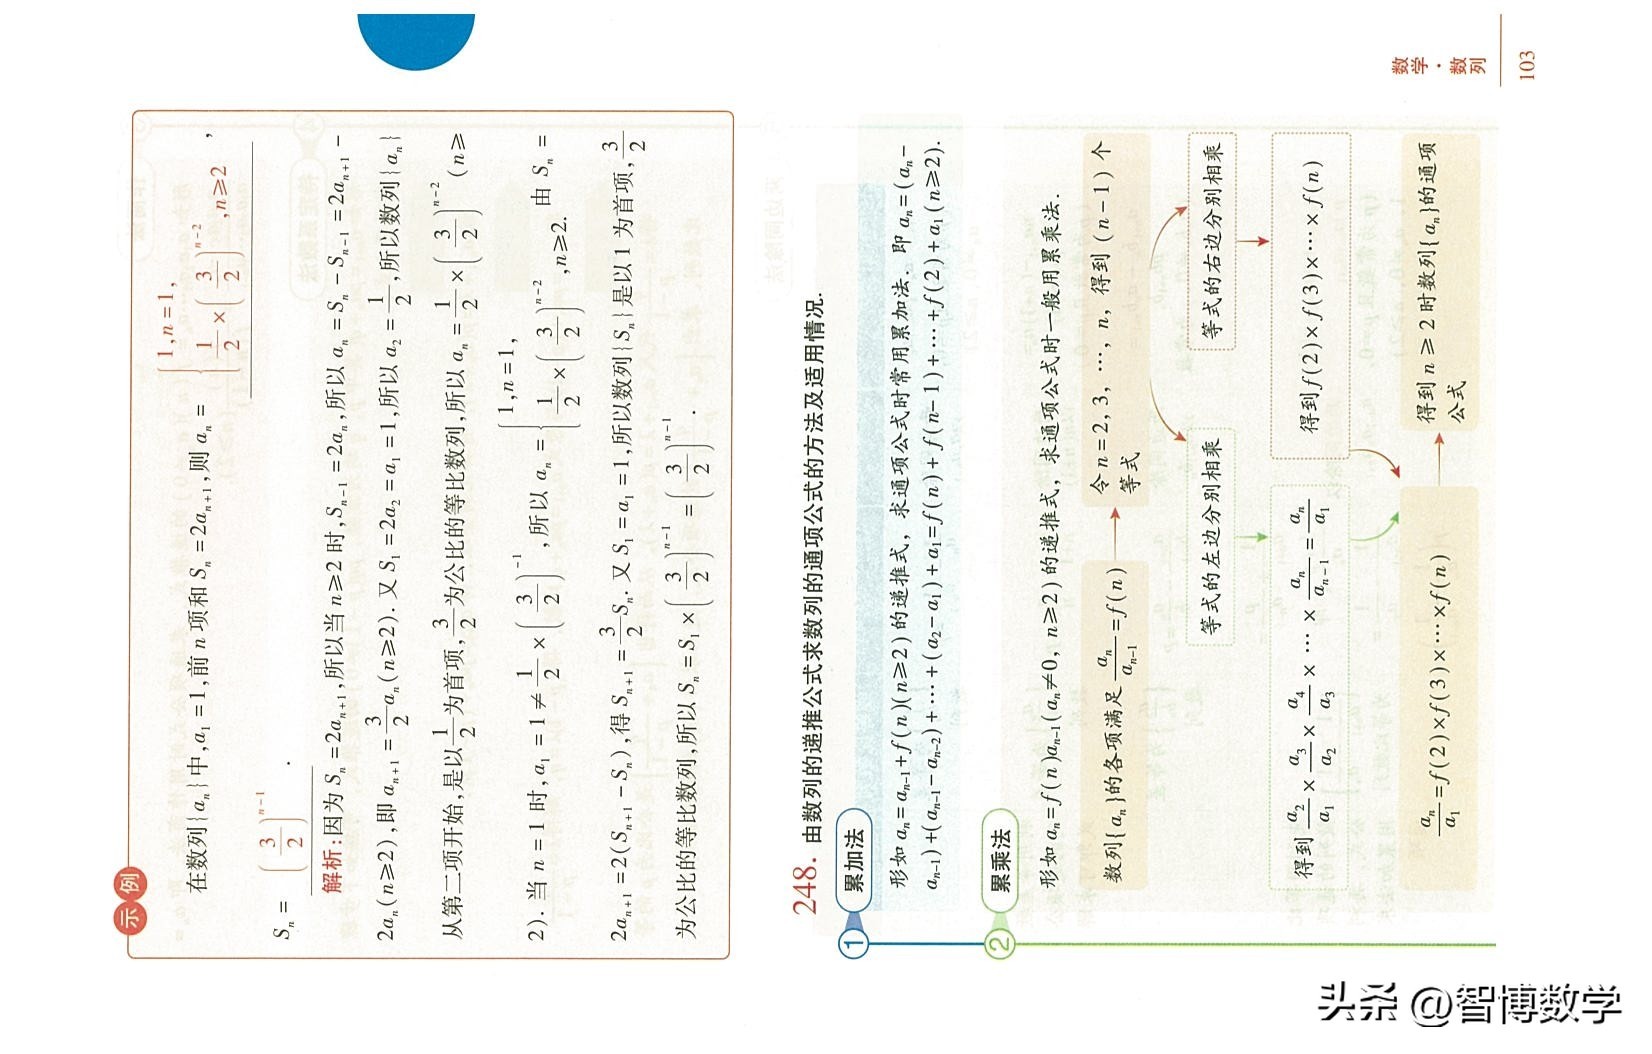 数学·数列
103
示例
在数列{aₙ}中,a₁=1,前n项和Sₙ=2aₙ₊₁,则aₙ={1,n=1, 1/2×(3/2)ⁿ⁻²,n≥2,
Sₙ=(3/2)ⁿ⁻¹.
解析:因为Sₙ=2aₙ₊₁,所以当n≥2时,Sₙ₋₁=2aₙ,所以aₙ=Sₙ-Sₙ₋₁=2aₙ₊₁-
2aₙ(n≥2),即aₙ₊₁=3/2aₙ(n≥2).又S₁=2a₂=a₁=1,所以a₂=1/2,所以数列{aₙ}
从第二项开始,是以1/2为首项,3/2为公比的等比数列,所以aₙ=1/2×(3/2)ⁿ⁻²(n≥
2).当n=1时,a₁=1≠1/2×(3/2)⁻¹,所以aₙ={1,n=1, 1/2×(3/2)ⁿ⁻²,n≥2. 由Sₙ=
2aₙ₊₁=2(Sₙ₊₁-Sₙ),得Sₙ₊₁=3/2Sₙ.又S₁=a₁=1,所以数列{Sₙ}是以1为首项,3/2
为公比的等比数列,所以Sₙ=S₁×(3/2)ⁿ⁻¹=(3/2)ⁿ⁻¹.
248.由数列的递推公式求数列的通项公式的方法及适用情况.
1 累加法
形如aₙ=aₙ₋₁+f(n)(n≥2)的递推式，求通项公式时常用累加法.即aₙ=(aₙ-
aₙ₋₁)+(aₙ₋₁-aₙ₋₂)+…+(a₂-a₁)+a₁=f(n)+f(n-1)+…+f(2)+a₁(n≥2).
2 累乘法
形如aₙ=f(n)aₙ₋₁(aₙ≠0,n≥2)的递推式，求通项公式时一般用累乘法.
数列{aₙ}的各项满足aₙ/aₙ₋₁=f(n)
令n=2,3,…,n,得到(n-1)个
等式
等式的左边分别相乘
等式的右边分别相乘
得到a₂/a₁×a₃/a₂×a₄/a₃×…×aₙ/aₙ₋₁=aₙ/a₁
得到f(2)×f(3)×…×f(n)
aₙ/a₁=f(2)×f(3)×…×f(n)
得到n≥2时数列{aₙ}的通项
公式
头条@智博数学